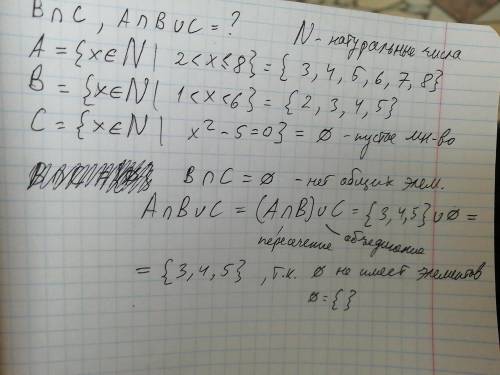 B∩C, A∩B∪C = ?
N - натуральные числа
A = {x∈N | 2<x≤8} = {3, 4, 5, 6, 7, 8}
B = {x∈N | 1<x<6} = {2, 3, 4, 5}
C = {x∈N | x²-5=0} = ∅ - пустое мн-во
B∩C = ∅ - нет общих элем.
A∩B∪C = (A∩B)∪C = {3,4,5}∪∅ =
пересечение объединение
= {3,4,5}, т.к. ∅ не имеет элементов
∅ = { }